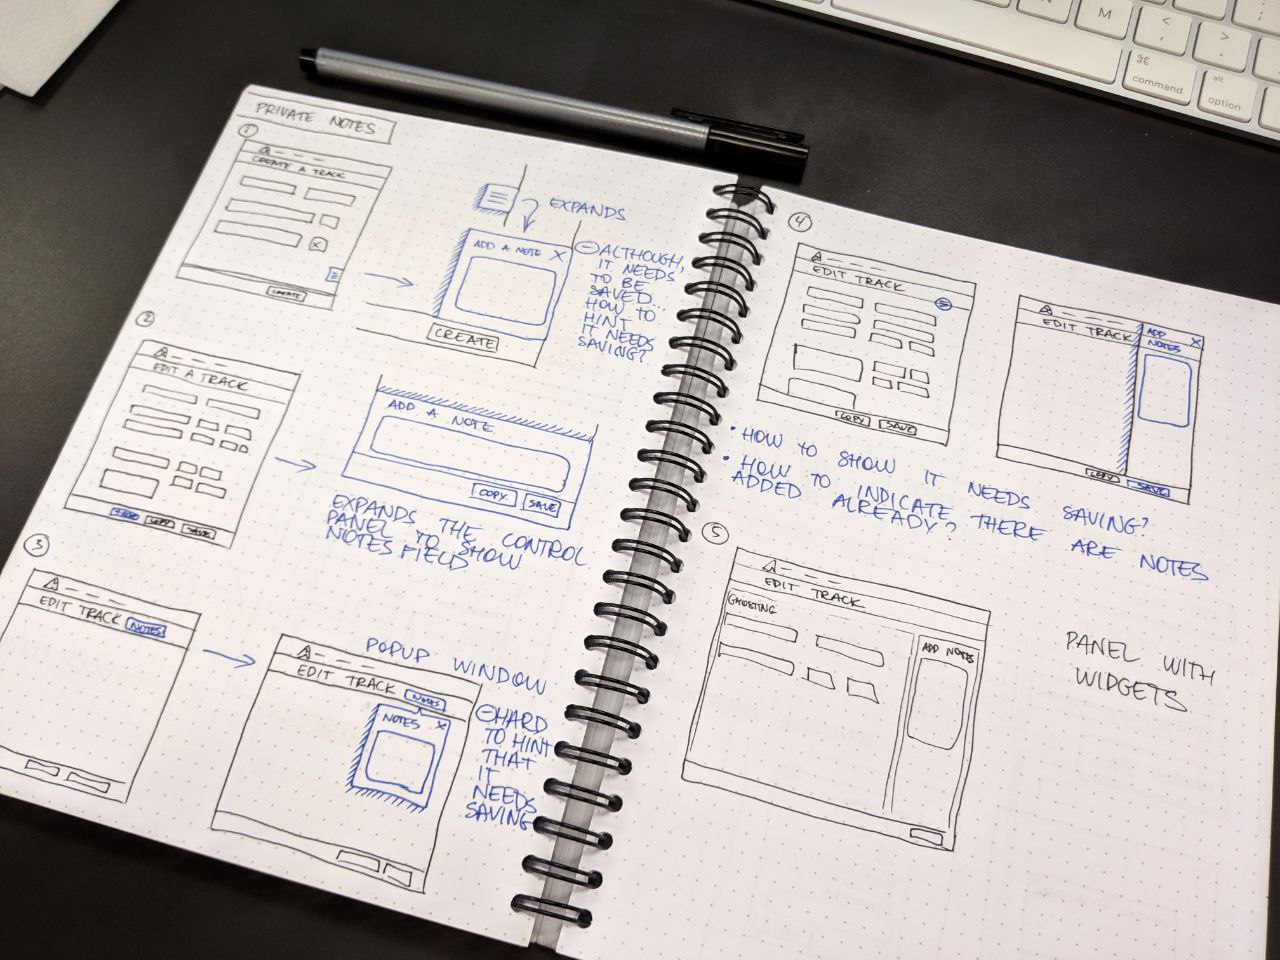 PRIVATE NOTES
1
CREATE A TRACK
CREATE
EXPANDS
ADD A NOTE X
CREATE
ALTHOUGH,
IT NEEDS
TO BE
SAVED...
HOW TO
HINT
IT NEEDS
SAVING?
2
EDIT A TRACK
COPY
SAVE
ADD A NOTE
COPY
SAVE
EXPANDS THE CONTROL
PANEL TO SHOW
NOTES FIELD
3
EDIT TRACK NOTES
POPUP WINDOW
EDIT TRACK
NOTES
NOTES X
HARD
TO HINT
THAT
IT
NEEDS
SAVING
4
EDIT TRACK
COPY
SAVE
EDIT TRACK
ADD
NOTES
X
COPY
SAVE
• HOW TO SHOW IT NEEDS SAVING?
• HOW TO INDICATE THERE ARE NOTES
ADDED ALREADY?
5
EDIT TRACK
GHOSTING
ADD NOTES
PANEL WITH
WIDGETS
M
<
,
>
.
⌘
command
alt
option